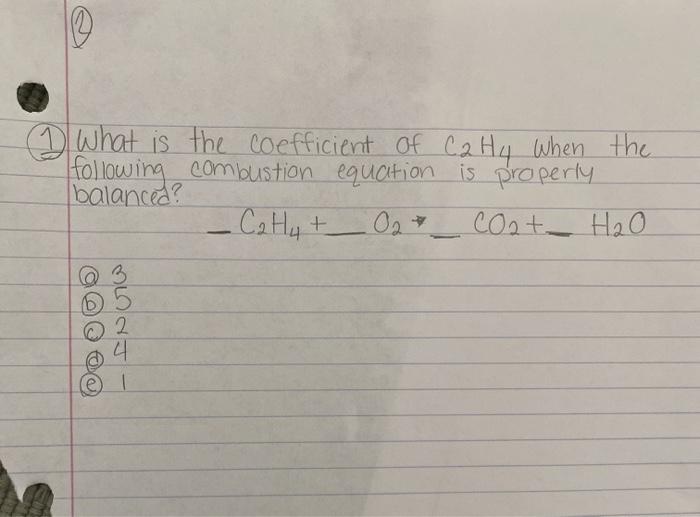 ②
① What is the coefficient of C₂H₄ when the
following combustion equation is properly
balanced?
_ C₂H₄ + _ O₂ → _ CO₂ + _ H₂O
ⓐ 3
ⓑ 5
ⓒ 2
ⓓ 4
ⓔ 1